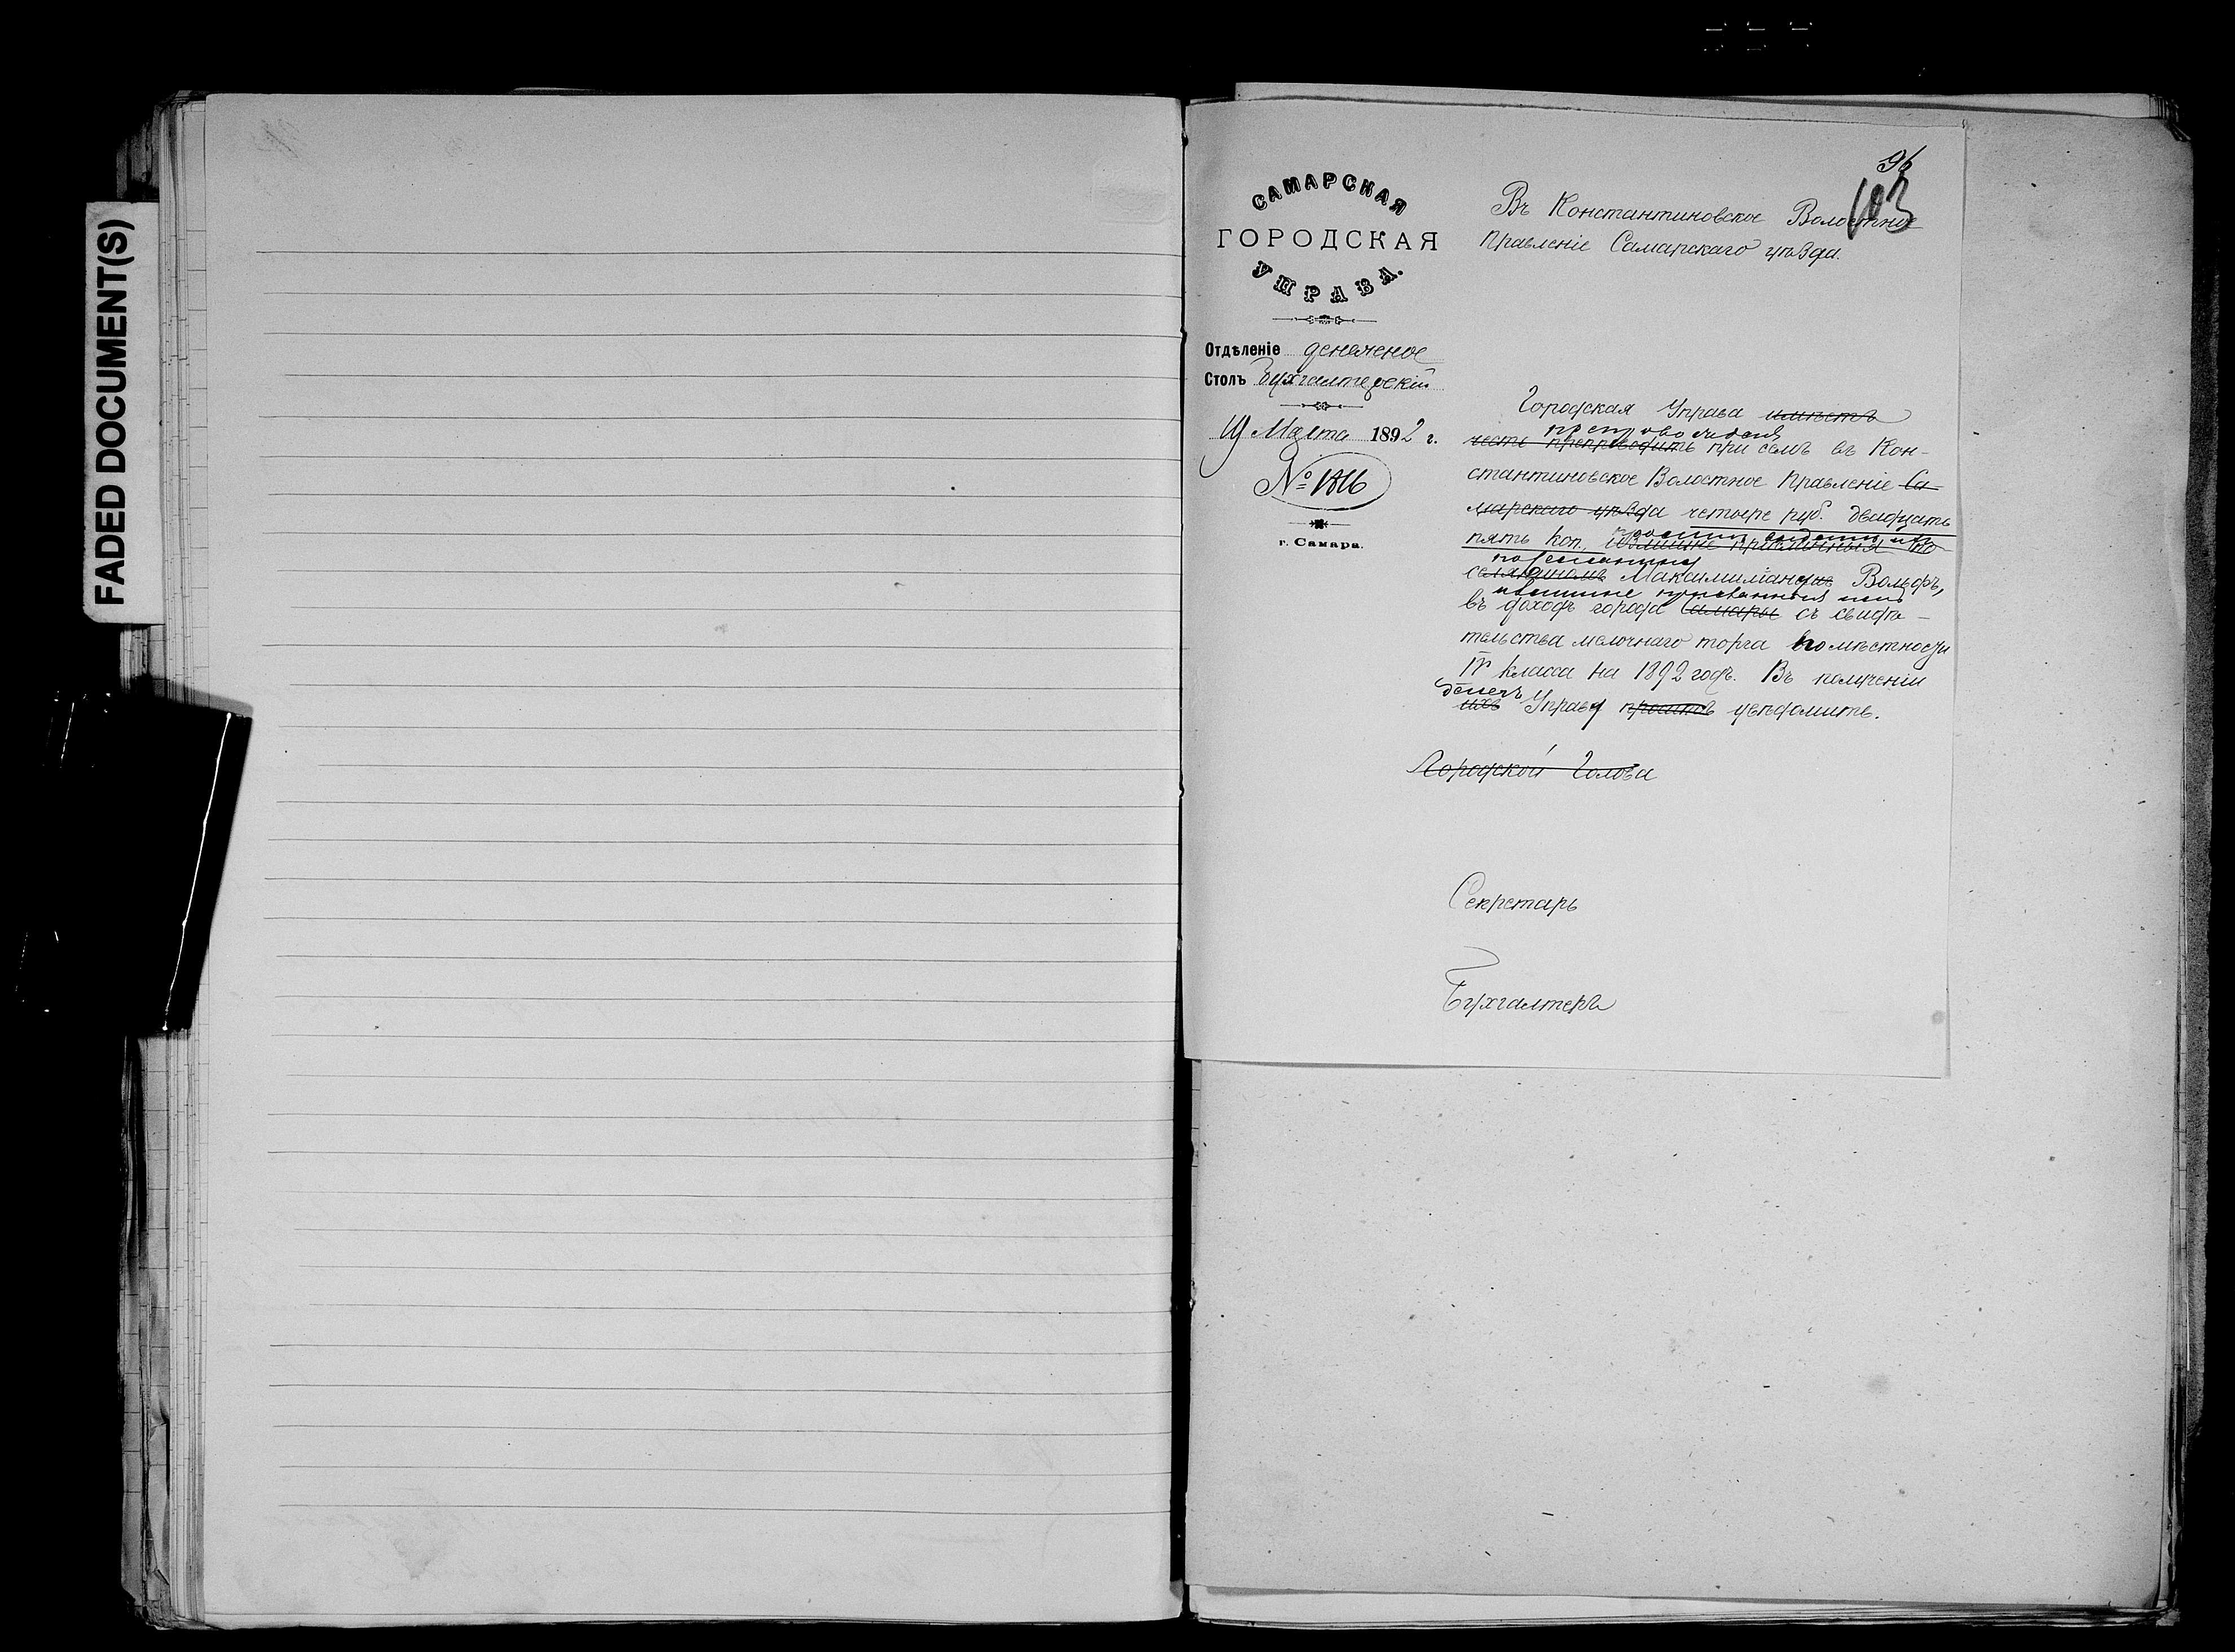 FADED DOCUMENT(S)
96
103
САМАРСКАЯ
ГОРОДСКАЯ
УПРАВА.
Отдѣленіе денежное
Столъ Бухгалтерскій
19 Марта 1892 г.
№ 1816
г. Самара.
Въ Константиновское Волостное
Правленіе Самарскаго уѣзда.
Городская Управа имѣетъ
препровождая
честь препроводить при семъ въ Кон-
стантиновское Волостное Правленіе Са-
марскаго уѣзда четыре руб. двадцать
проситъ выдать ихъ
пять коп., излишне принятыя
поселянину
селяниномъ Максимиліану Вольфъ,
излишне
въ доходъ города Самары съ свидѣ-
тельства мелочнаго торга по мѣстности
IV класса на 1892 годъ. Въ полученіи
денегъ
ихъ Управу проситъ увѣдомить.
Городской Голова
Секретарь
Бухгалтеръ